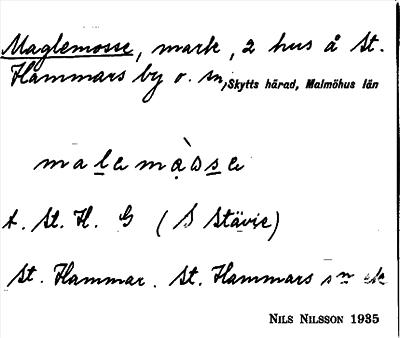 Maglemosse, mark, 2 hus å St.
Hammars by o. sn, Skytts härad, Malmöhus län
t. St. H. G (S Stävie)
St. Hammar. St. Hammars sn
NILS NILSSON 1935